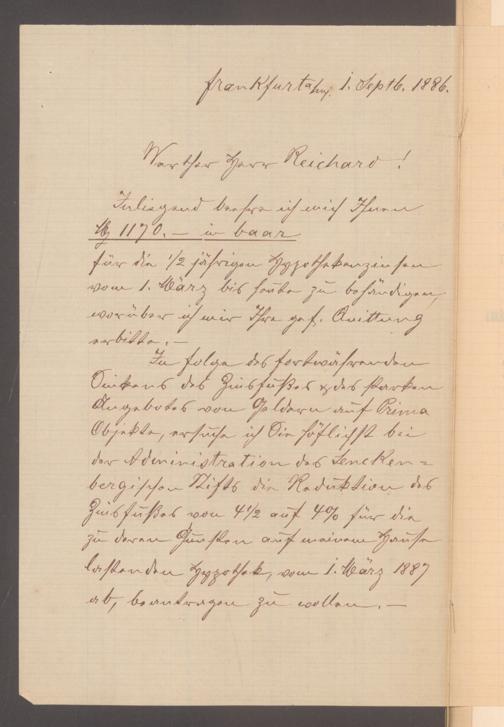 Frankfurt a/m, 1. Septb. 1886.
Werther Herr Reichard!
Inliegend beehre ich mich Ihnen
M 1170.— in baar
für die 1/2 jährigen Hypothekenzinsen
vom 1. März bis heute zu behändigen,
worüber ich mir Ihre gef. Quittung
erbitte.—
In folge des fortwährenden
Sinkens des Zinsfußes & des starken
Angebotes von Geldern auf Prima
Objekte, ersuche ich Sie höflichst bei
der Administration des Sencken=
bergischen Stifts die Reduktion des
Zinsfußes von 4 1/2 auf 4% für die
zu deren Gunsten auf meinem Hause
lastenden Hypothek, vom 1. März 1887
ab, beantragen zu wollen.—